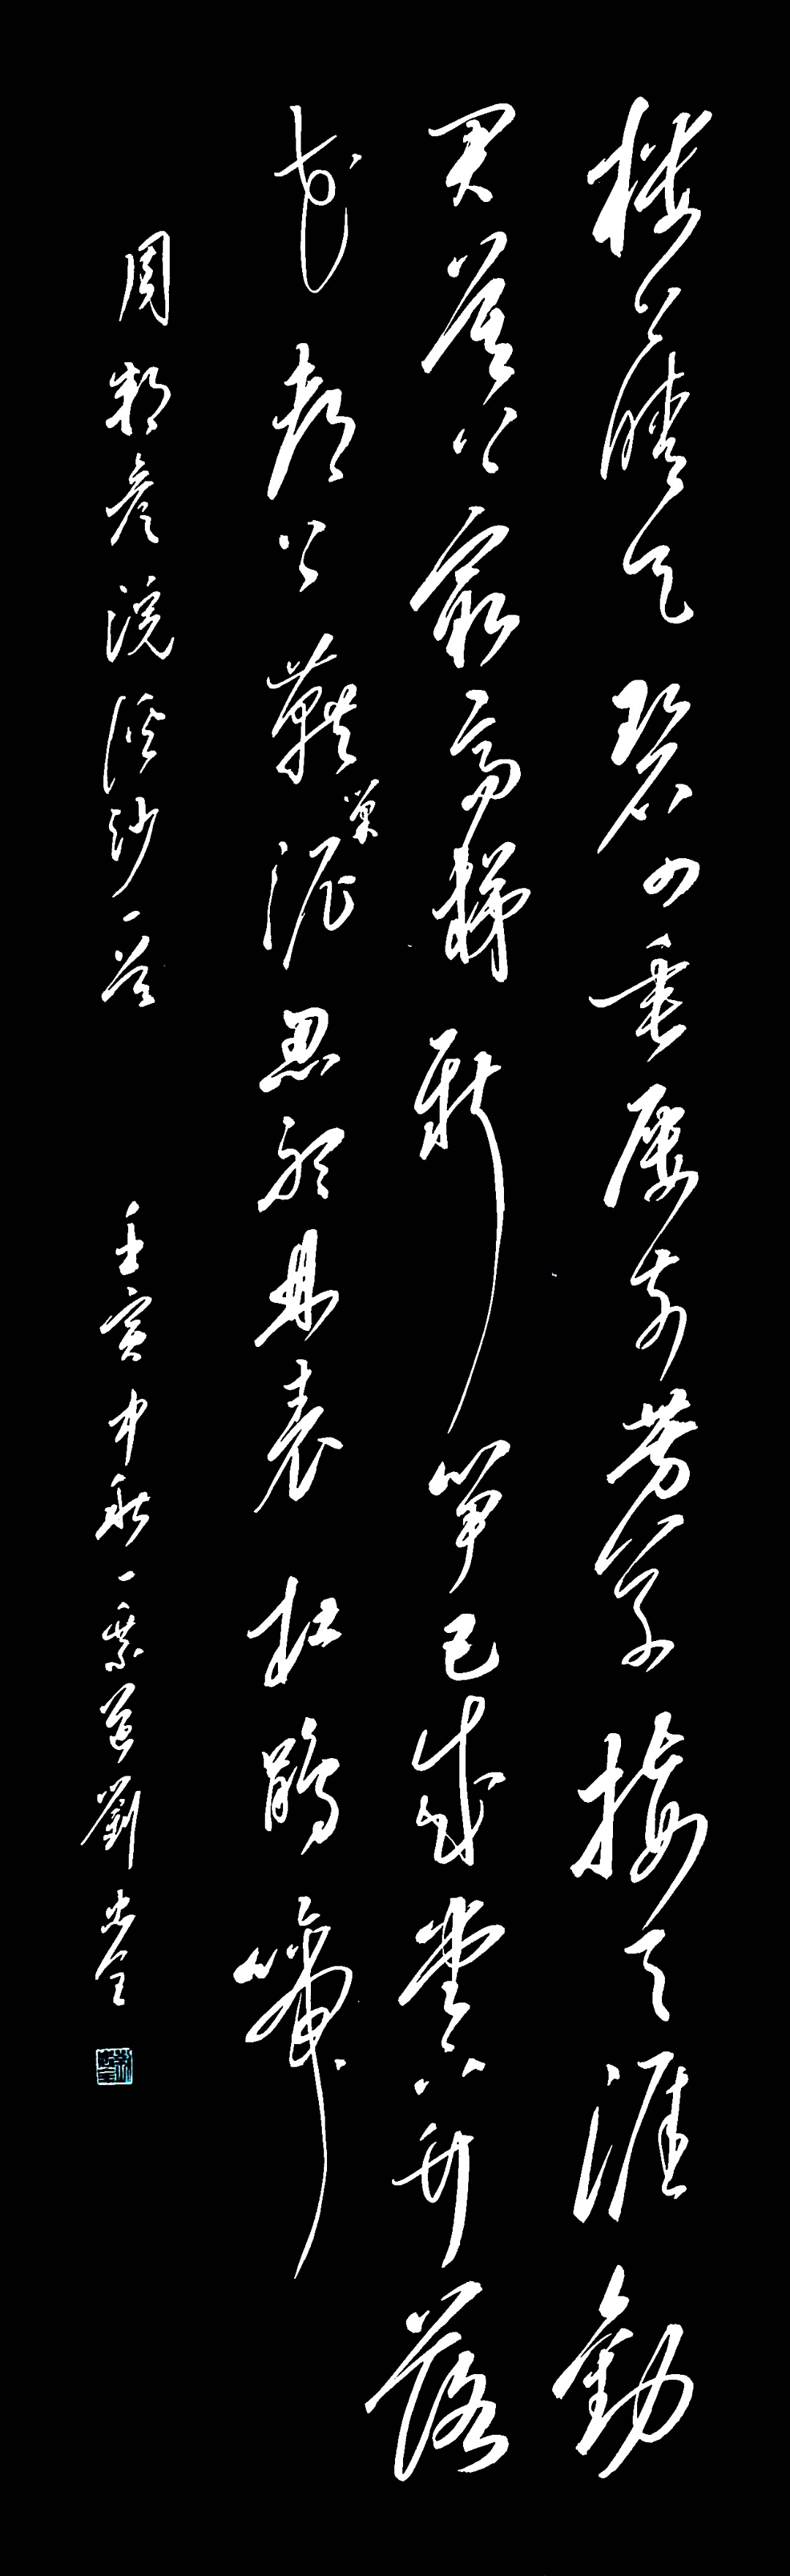 樓上晴天碧四垂屢前芳草接天涯勸
君莫上最高梯新筍已成堂下竹落
花都上燕巢泥忍聽林表杜鵑啼
周邦彥浣溪沙一首 壬寅中秋一葉道劉忠全